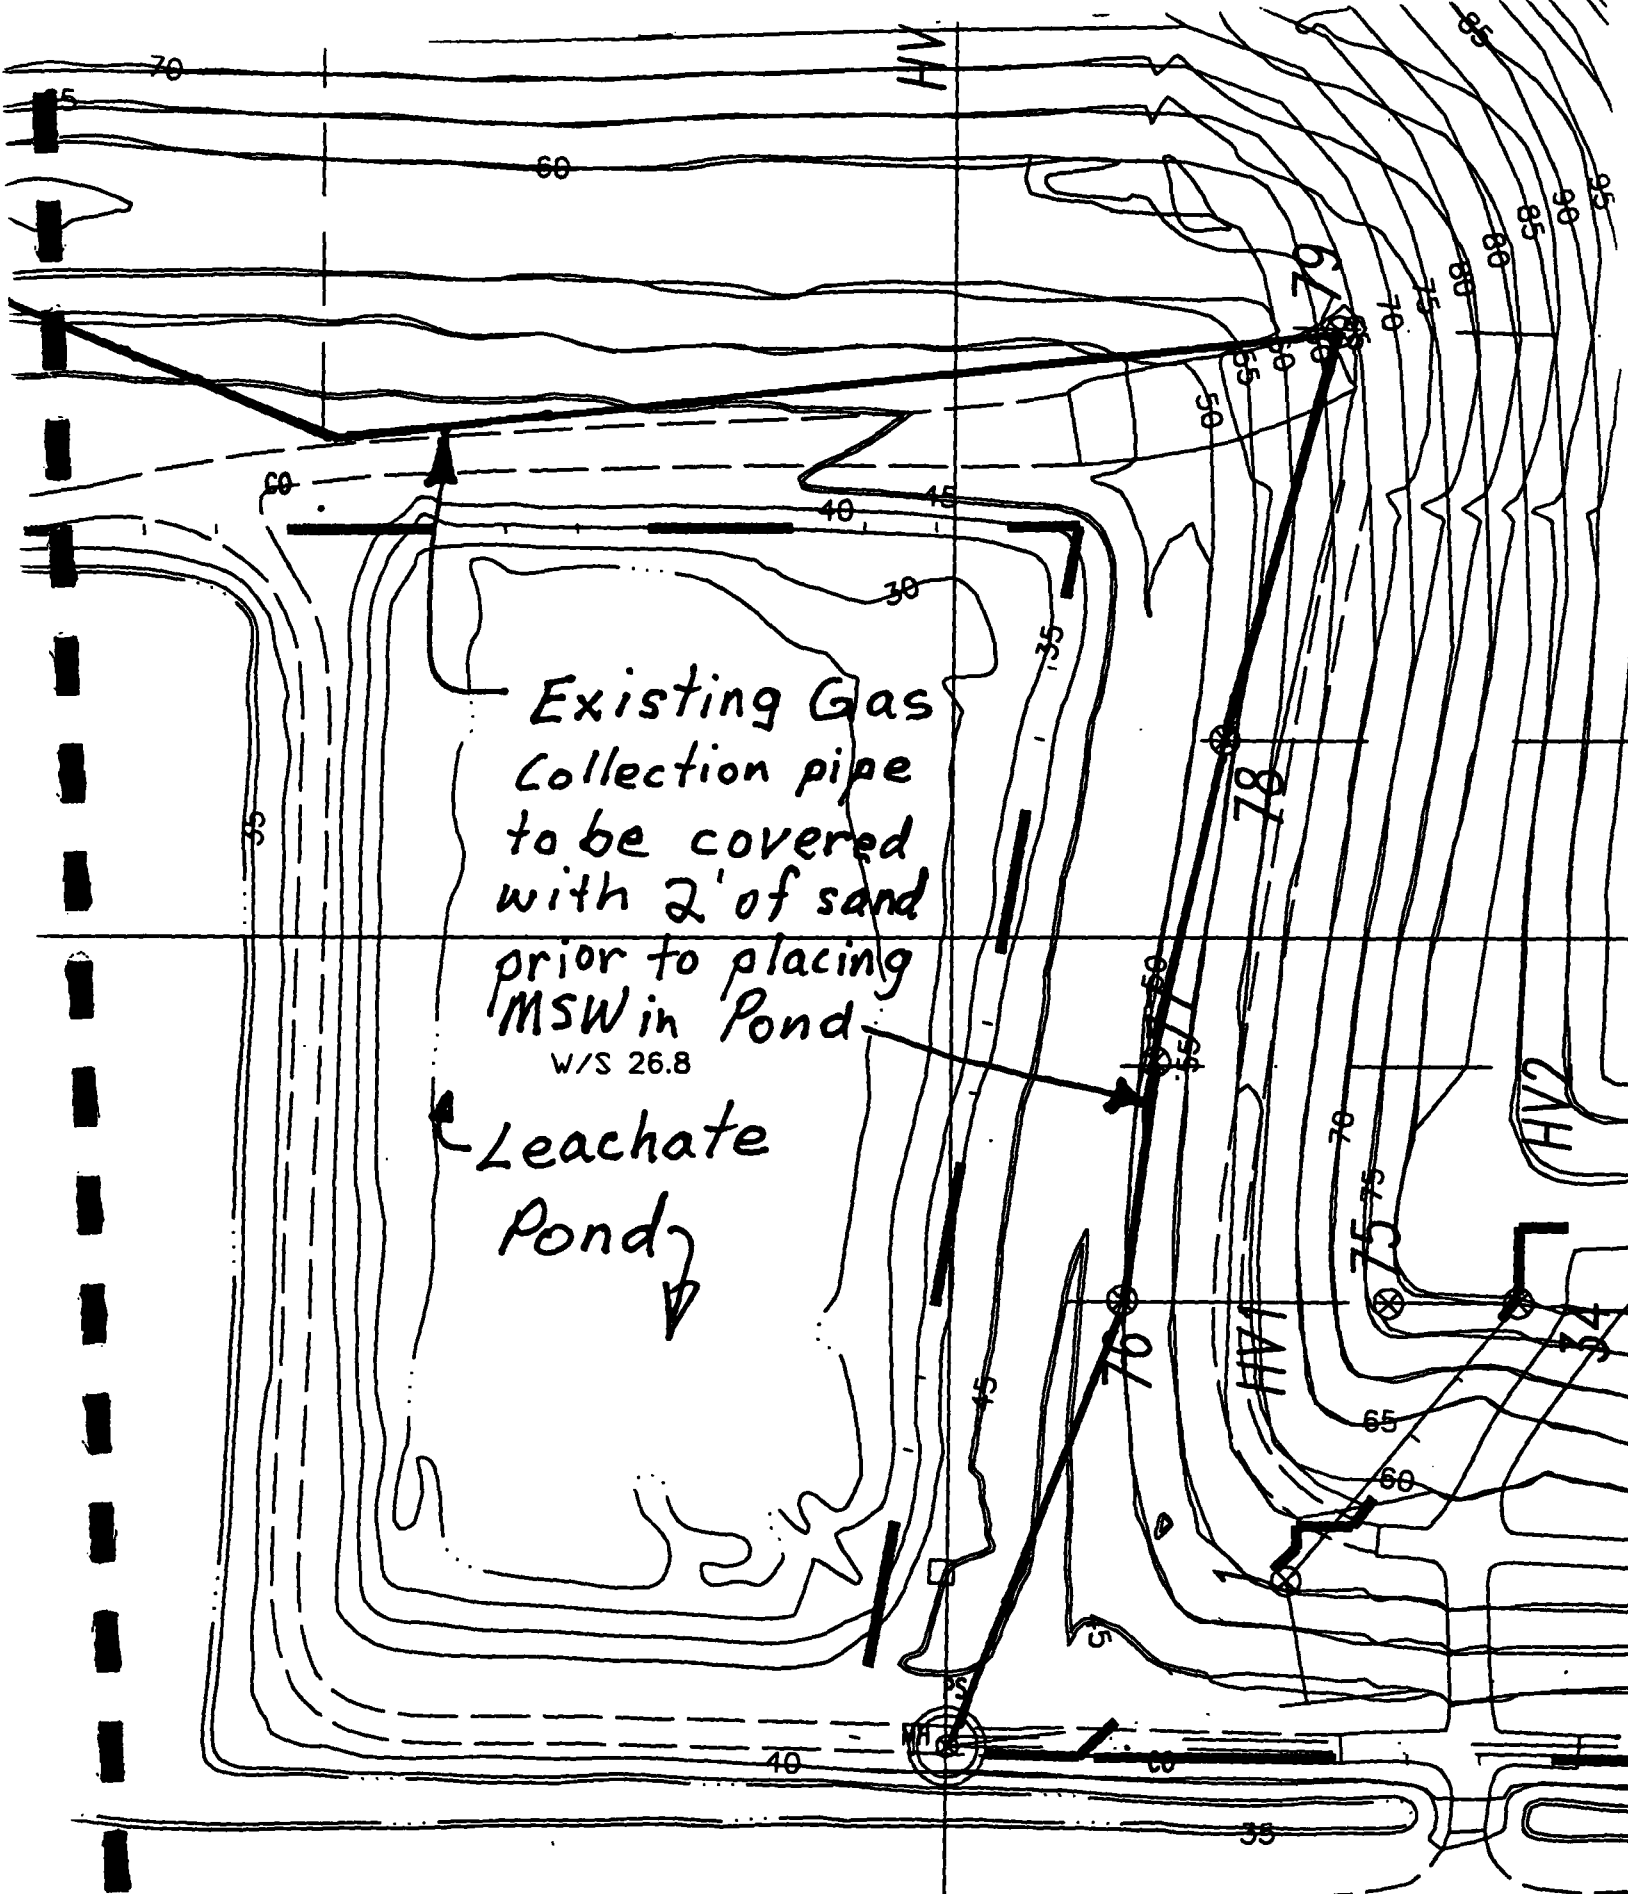 HV
70
65
60
95
90
85
80
80
75
70
79
60
55
50
60
45
40
30
35
Existing Gas
Collection pipe
to be covered
with 2' of sand
prior to placing
MSW in Pond
W/S 26.8
Leachate
Pond
78
35
50
77
55
HV2
70
75
75
76
HV1
34
45
65
60
45
MH
40
35